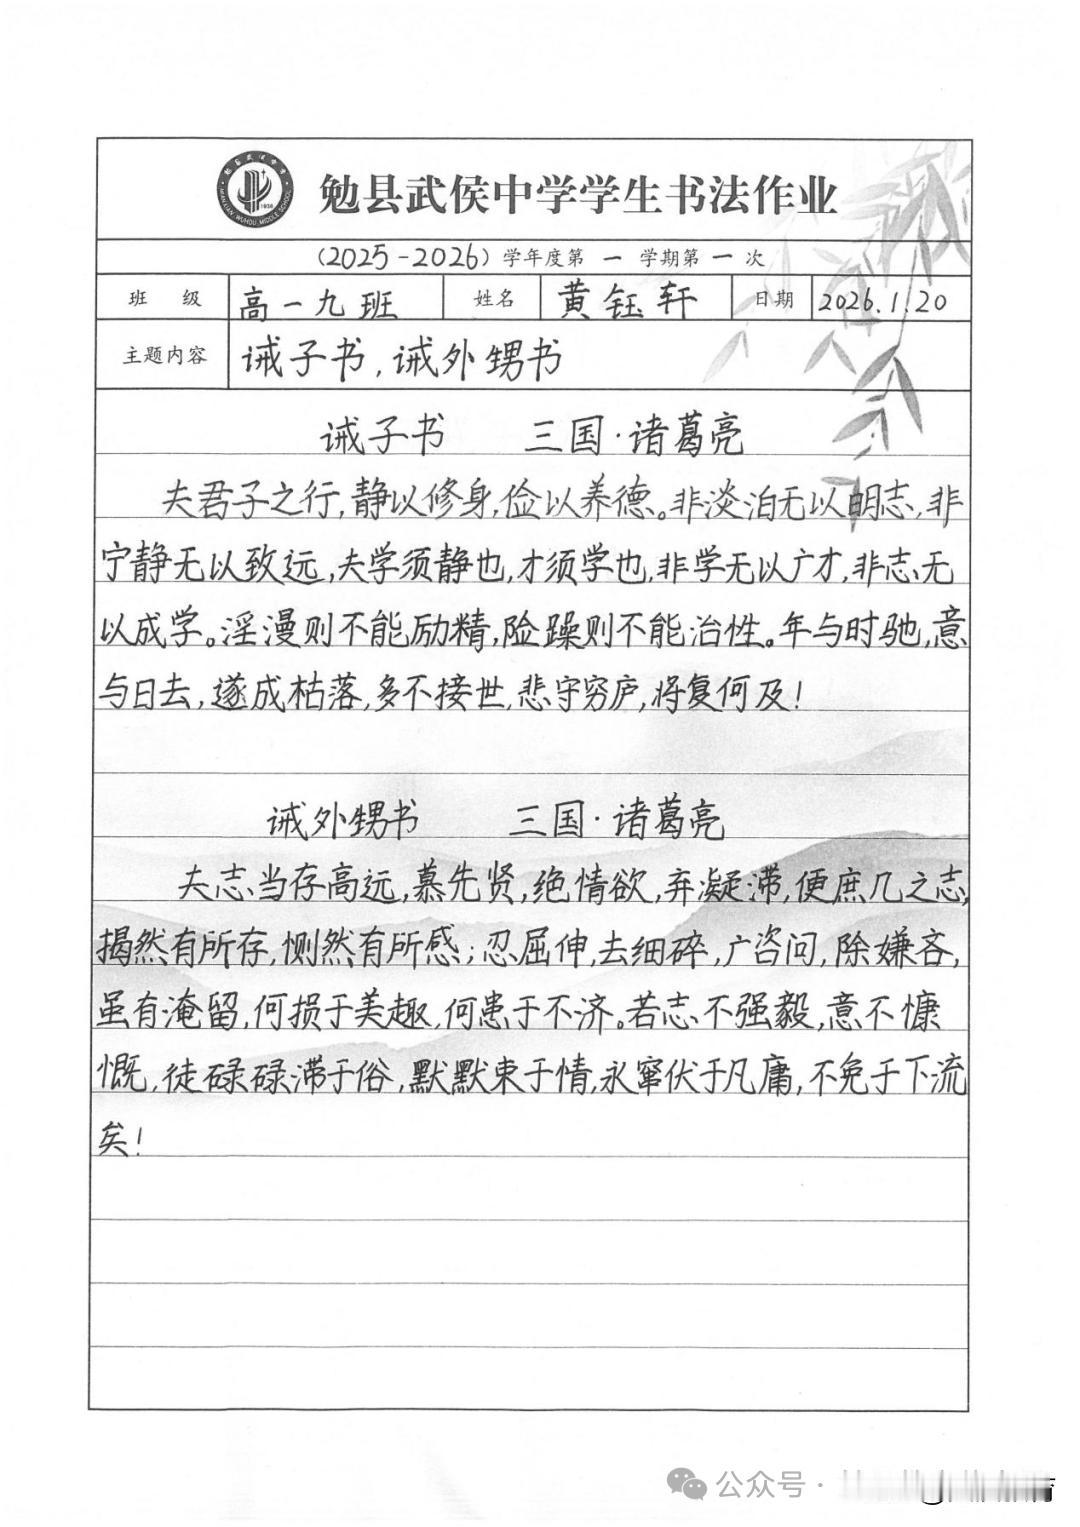 勉县武侯中学学生书法作业
(2025-2026)学年度第一学期第一次
班级 高一九班 姓名 黄钰轩 日期 2026.1.20
主题内容 诫子书,诫外甥书
诫子书 三国·诸葛亮
夫君子之行,静以修身,俭以养德。非淡泊无以明志,非
宁静无以致远,夫学须静也,才须学也,非学无以广才,非志无
以成学。淫漫则不能励精,险躁则不能治性。年与时驰,意
与日去,遂成枯落,多不接世,悲守穷庐,将复何及!
诫外甥书 三国·诸葛亮
夫志当存高远,慕先贤,绝情欲,弃凝滞,便庶几之志,
揭然有所存,恻然有所感;忍屈伸,去细碎,广咨问,除嫌吝,
虽有淹留,何损于美趣,何患于不济。若志不强毅,意不慷
慨,徒碌碌滞于俗,默默束于情,永窜伏于凡庸,不免于下流
矣!
公众号·